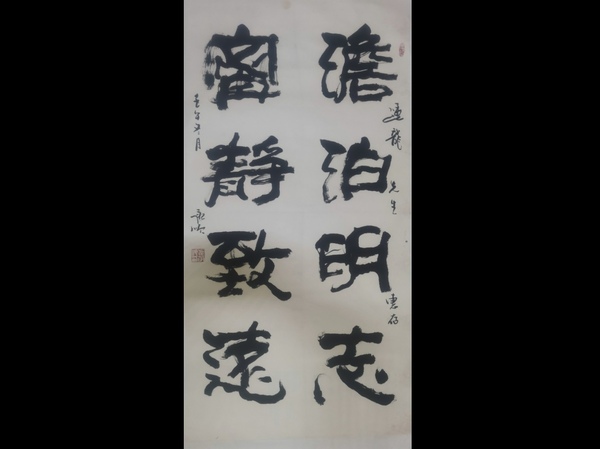 澹泊明志
龍先生惠存
寧静致遠
壬午年月